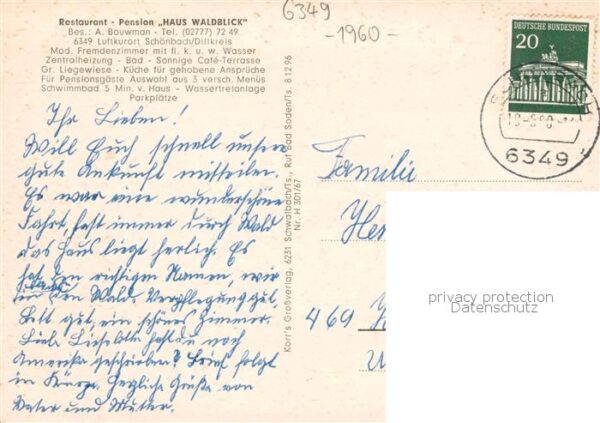 6349
-1960-
Restaurant - Pension „HAUS WALDBLICK"
Bes.: A. Bauwman - Tel. (02777) 72 49
6349 Luftkurort Schönbach/Dillkreis
Mod. Fremdenzimmer mit fl. k. u. w. Wasser
Zentralheizung - Bad - Sonnige Café-Terrasse
Gr. Liegewiese - Küche für gehobene Ansprüche
Für Pensionsgäste Auswahl aus 3 versch. Menüs
Schwimmbad 5 Min. v. Haus - Wassertretanlage
Parkplätze
Ihr Lieben!
Will Euch schnell unsere
gute Ankunft mitteilen.
Es war eine wunderschöne
Fahrt, fast immer durch Wald
das Haus liegt herlich. Es
hat den richtigen Namen, wir
in den Wald. Verpflegung gut,
Bett gut, ein schönes Zimmer.
Liebe Lieselotte hast du nach
Amerika geschrieben? Brief folgt
in Kürze. Herzliche Grüße von
Vater und Mutter.
Korr's Großverlag, 6231 Schwalbach/Ts., Ruf Bad Soden/Ts. 8 12 96
Nr. H 301/67
DEUTSCHE BUNDESPOST
20
6349
Familie
He
469
privacy protection
Datenschutz